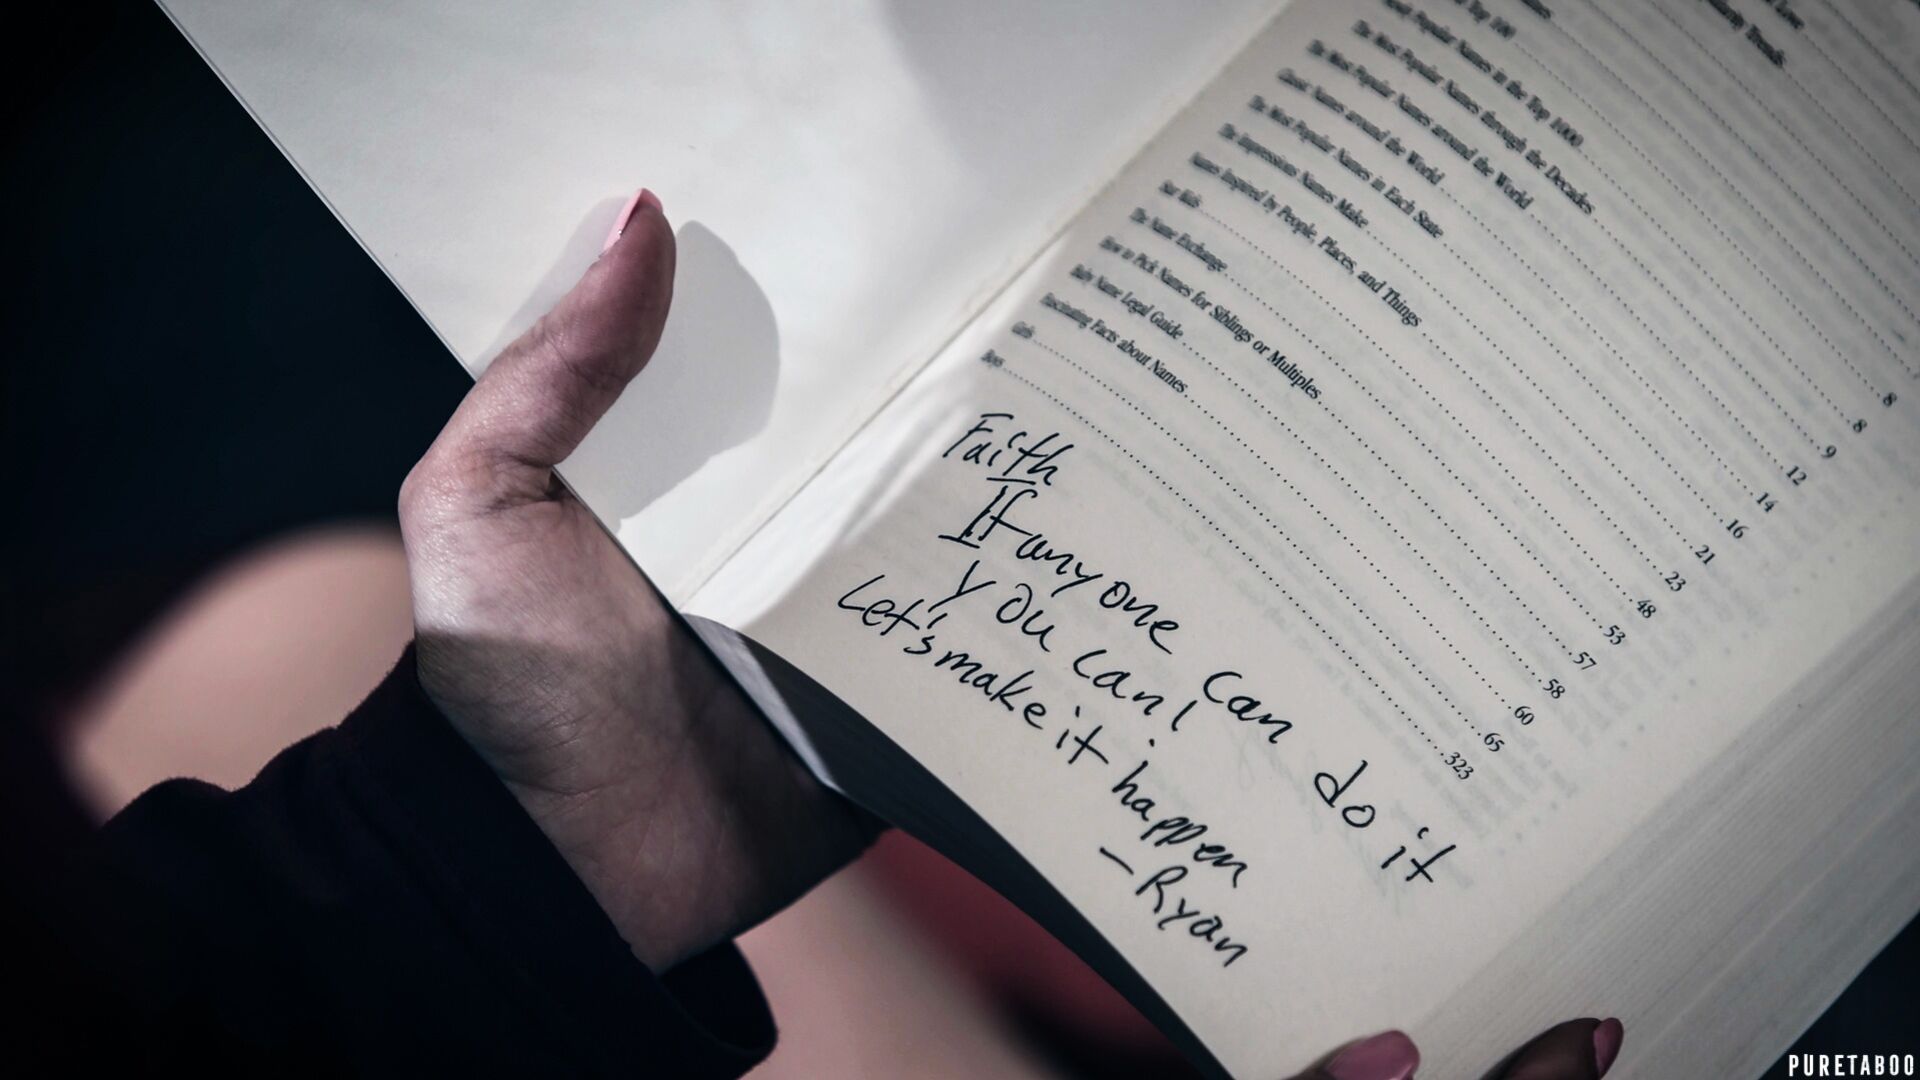 Top 100
Names in the Top 1000
The Most Popular Names through the Decades
The Most Popular Names around the World
Names around the World 8
The Most Popular Names in Each State 8
The Impressions Names Make 9
Names Inspired by People, Places, and Things 12
Star Kids 14
The Name Exchange 16
How to Pick Names for Siblings or Multiples 21
Baby Name Legal Guide 23
Fascinating Facts about Names 48
Girls 53
Boys 57
58
60
65
323
Faith
If anyone can do it
you can!
Let's make it happen
- Ryan
PURETABOO